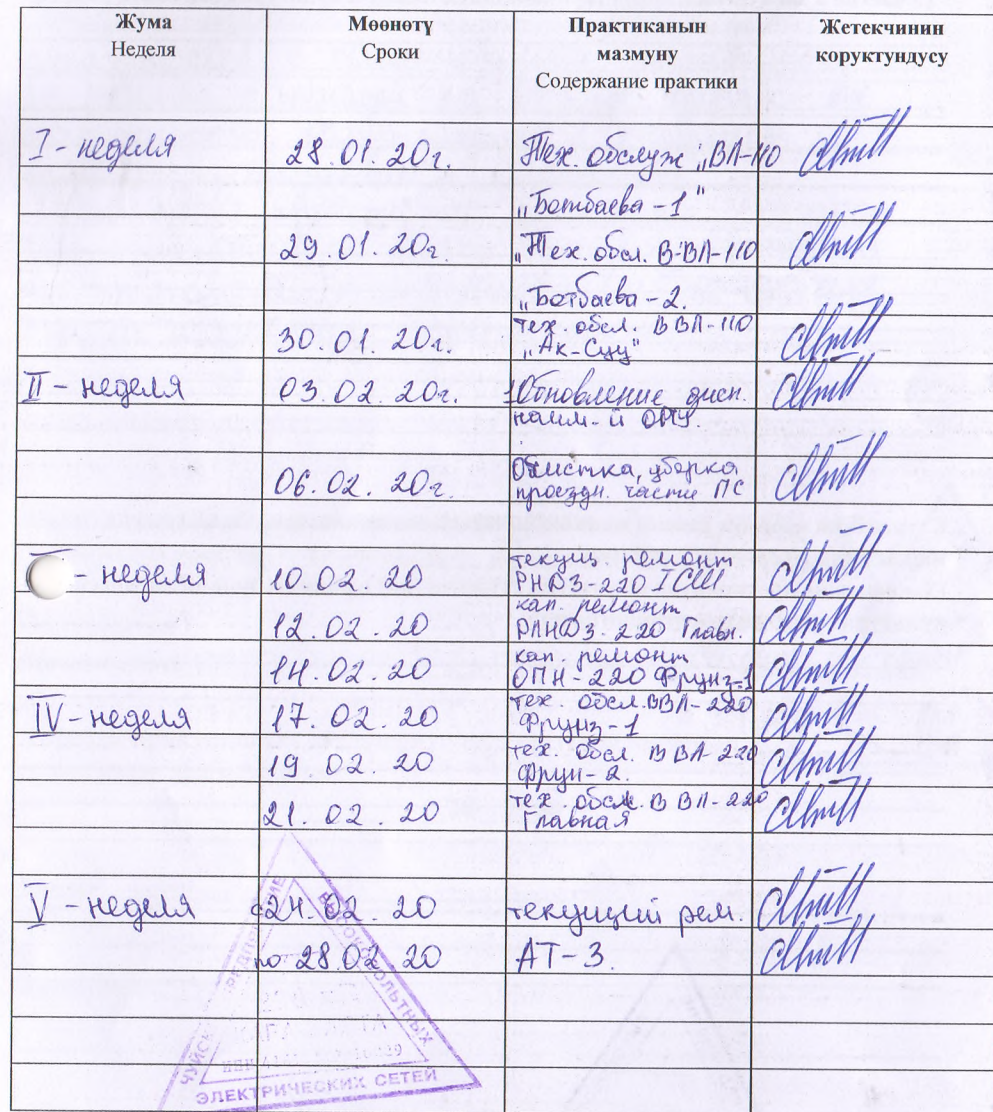 Жума
Неделя
Мөөнөтү
Сроки
Практиканын
мазмуну
Содержание практики
Жетекчинин
коруктундусу
I - неделя 28.01.20г. Тех. обслуж „ВЛ-110
„Ботбаева - 1"
29.01.20г. „Тех. обсл. В-ВЛ-110
„Ботбаева - 2.
30.01.20г. тех. обсл. В ВЛ-110
„Ак-Суу"
II - неделя 03.02.20г. Обновление дисп.
наим-й ОРУ.
06.02.20г. Очистка, уборка
проездн. части ПС
- неделя 10.02.20 текущ. ремонт
РНДЗ-220 I СШ
12.02.20 кап. ремонт
РЛНДЗ-220 Главн.
14.02.20 кап. ремонт
ОПН-220 Фрунз-1
IV - неделя 17.02.20 тех обсл. ВВЛ-220
Фрунз-1
19.02.20 тех. обсл. В ВЛ 220
Фрун-2.
21.02.20 тех. обсл. В ВЛ-220
Главная
V - неделя с 24.02.20 текущий рем.
по 28.02.20 АТ-3.
ВЫСОКОВОЛЬТНЫХ
ЭЛЕКТРИЧЕСКИХ СЕТЕЙ